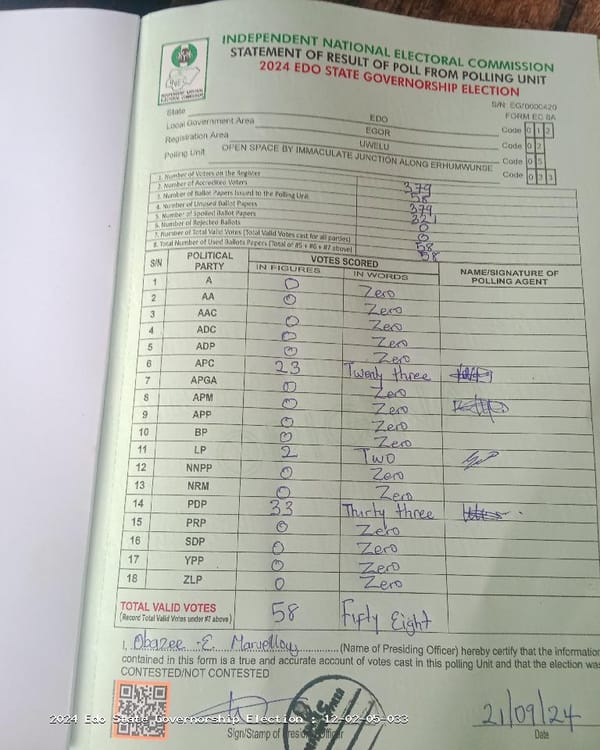 INDEPENDENT NATIONAL ELECTORAL COMMISSION
STATEMENT OF RESULT OF POLL FROM POLLING UNIT
2024 EDO STATE GOVERNORSHIP ELECTION
S/N: EG/0000420
FORM EC 8A
State EDO Code 0 1 2
Local Government Area EGOR Code 0 2
Registration Area UWELU Code 0 5
Polling Unit OPEN SPACE BY IMMACULATE JUNCTION ALONG ERHUMWUNSE Code 0 3 3
1. Number of Voters on the Register 379
2. Number of Accredited Voters 58
3. Number of Ballot Papers Issued to the Polling Unit 379
4. Number of Unused Ballot Papers 321
5. Number of Spoiled Ballot Papers 0
6. Number of Rejected Ballots 0
7. Number of Total Valid Votes (Total Valid Votes cast for all parties) 58
8. Total Number of Used Ballots Papers (Total of #5 + #6 + #7 above) 58
S/N POLITICAL PARTY VOTES SCORED NAME/SIGNATURE OF POLLING AGENT
IN FIGURES IN WORDS
1 A 0 Zero
2 AA 0 Zero
3 AAC 0 Zero
4 ADC 0 Zero
5 ADP 0 Zero
6 APC 23 Twenty three
7 APGA 0 Zero
8 APM 0 Zero
9 APP 0 Zero
10 BP 0 Zero
11 LP 2 Two
12 NNPP 0 Zero
13 NRM 0 Zero
14 PDP 33 Thirty three
15 PRP 0 Zero
16 SDP 0 Zero
17 YPP 0 Zero
18 ZLP 0 Zero
TOTAL VALID VOTES 58 Fifty Eight
(Record Total Valid Votes under #7 above)
I, Obazee E. Marvellous (Name of Presiding Officer) hereby certify that the information
contained in this form is a true and accurate account of votes cast in this polling Unit and that the election was
CONTESTED/NOT CONTESTED
21/09/24
2024 Edo State Governorship Election : 12-02-05-033
Sign/Stamp of Presiding Officer Date